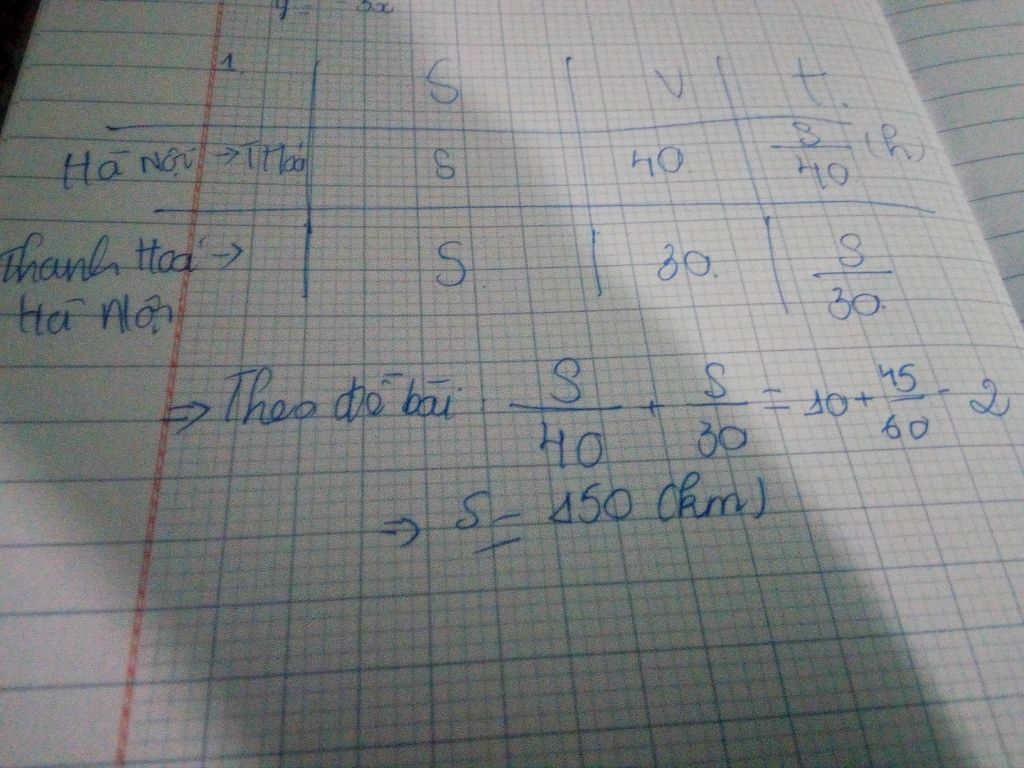 y = -3x
1. S V t
Hà Nội → T Hoá S 40 S/40 (h)
Thanh Hoá → S 30 S/30
Hà Nội
⇒ Theo đề bài S/40 + S/30 = 10 + 45/60 - 2
⇒ S = 150 (km)